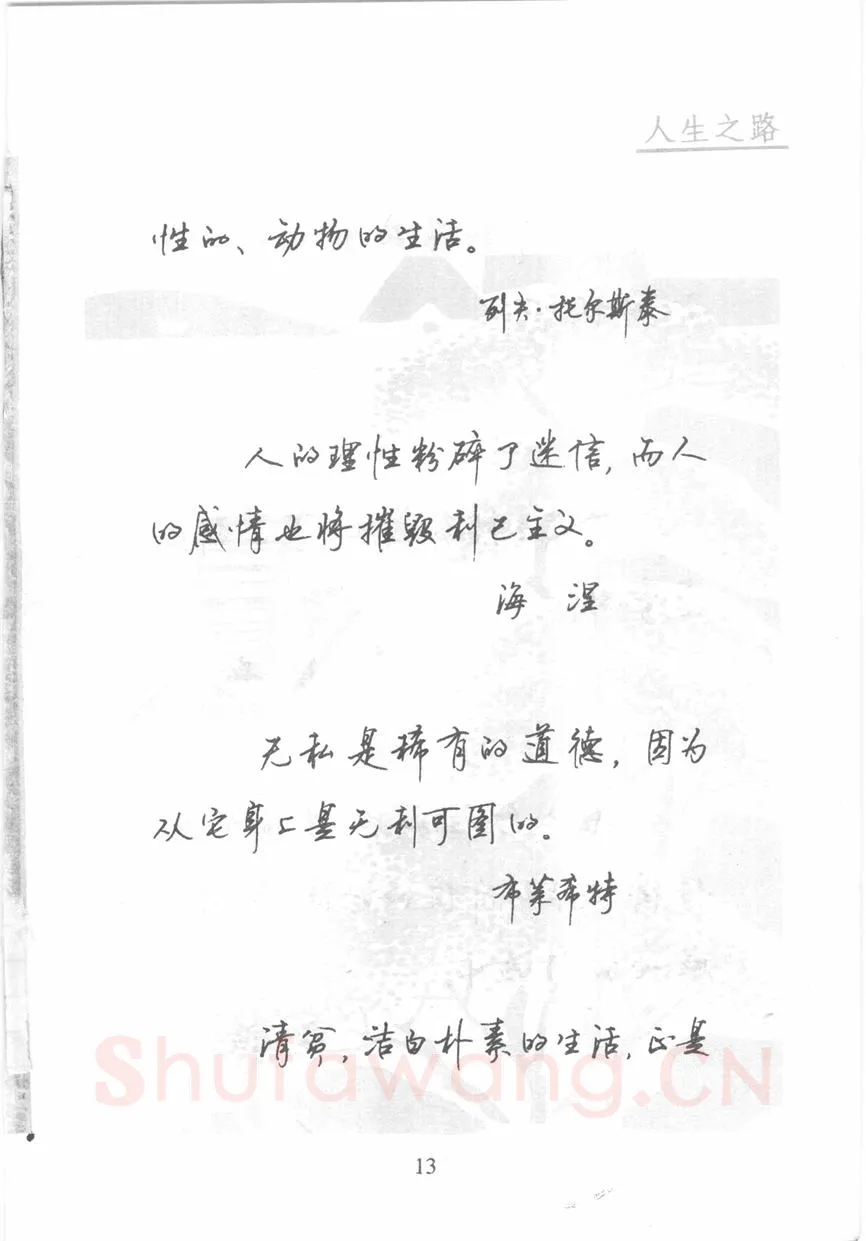 人生之路
性的、动物的生活。
列夫·托尔斯泰
人的理性粉碎了迷信,而人
的感情也将摧毁利己主义。
海 涅
无私是稀有的道德,因为
从它身上是无利可图的。
布莱希特
清贫,洁白朴素的生活,正是
Shufawang.CN
13